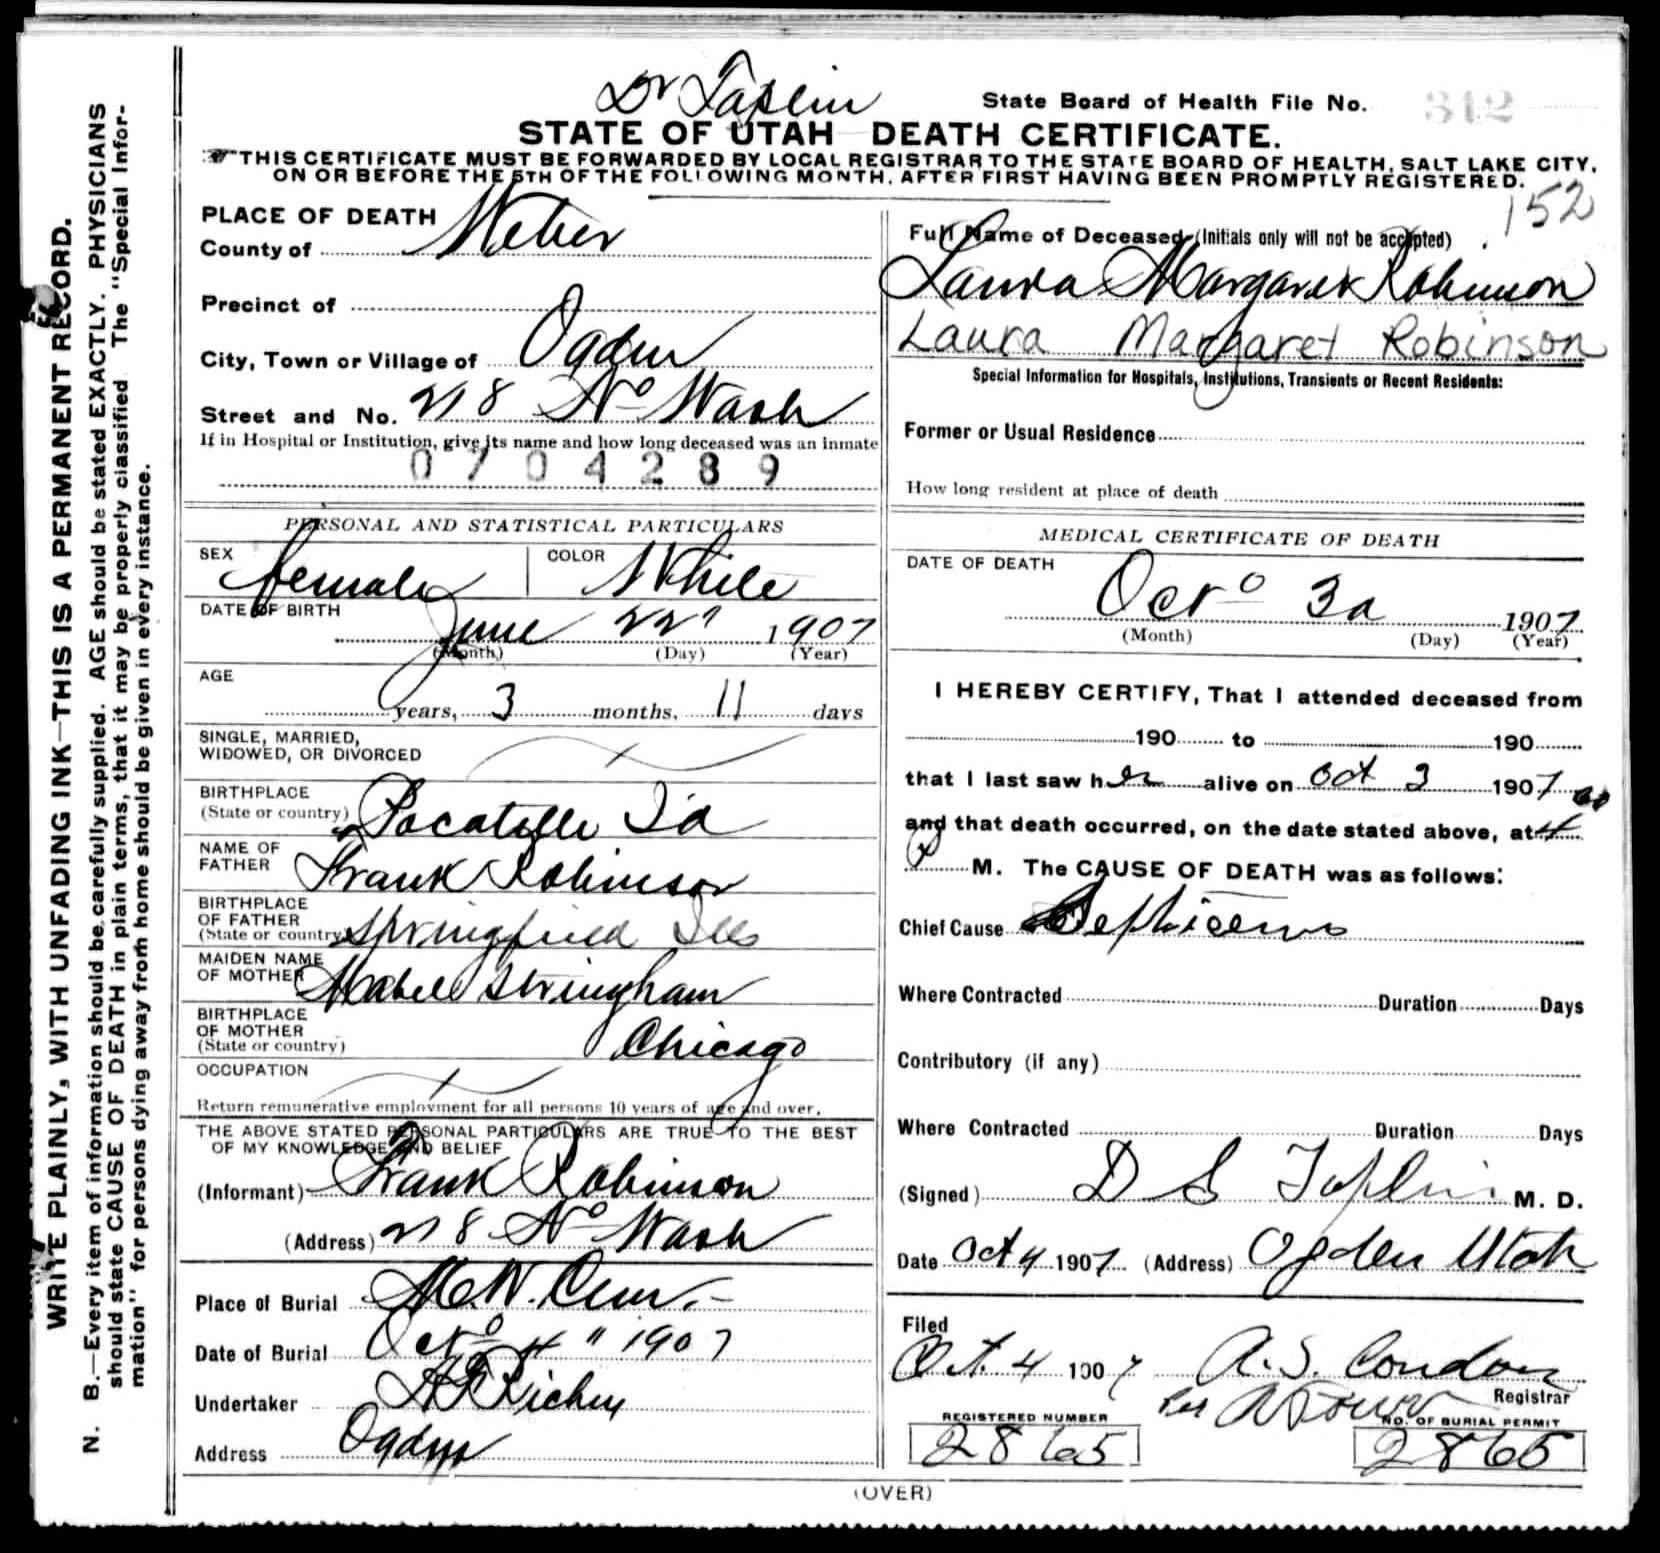 Dr Taplin
State Board of Health File No. 342
STATE OF UTAH DEATH CERTIFICATE.
THIS CERTIFICATE MUST BE FORWARDED BY LOCAL REGISTRAR TO THE STATE BOARD OF HEALTH, SALT LAKE CITY,
ON OR BEFORE THE 5TH OF THE FOLLOWING MONTH, AFTER FIRST HAVING BEEN PROMPTLY REGISTERED.
152
WRITE PLAINLY, WITH UNFADING INK—THIS IS A PERMANENT RECORD.
N. B.—Every item of information should be carefully supplied. AGE should be stated EXACTLY. PHYSICIANS
should state CAUSE OF DEATH in plain terms, that it may be properly classified. The "Special Infor-
mation" for persons dying away from home should be given in every instance.
PLACE OF DEATH
County of Weber
Precinct of
City, Town or Village of Ogden
Street and No. 218 No Wash
If in Hospital or Institution, give its name and how long deceased was an inmate
0704289
PERSONAL AND STATISTICAL PARTICULARS
SEX female COLOR White
DATE OF BIRTH
June 22" 1907
(Month) (Day) (Year)
AGE
years, 3 months, 11 days
SINGLE, MARRIED,
WIDOWED, OR DIVORCED
BIRTHPLACE
(State or country) Pocatello Ida
NAME OF
FATHER Frank Robinson
BIRTHPLACE
OF FATHER
(State or country) Springfield Ills
MAIDEN NAME
OF MOTHER Mabel Stringham
BIRTHPLACE
OF MOTHER
(State or country) Chicago
OCCUPATION
Return remunerative employment for all persons 10 years of age and over.
THE ABOVE STATED PERSONAL PARTICULARS ARE TRUE TO THE BEST
OF MY KNOWLEDGE AND BELIEF
(Informant) Frank Robinson
(Address) 218 No Wash
Place of Burial Cem.
Date of Burial Oct 4" 1907
Undertaker Richey
Address Ogden
Full Name of Deceased (Initials only will not be accepted)
Laura Margaret Robinson
Laura Margaret Robinson
Special Information for Hospitals, Institutions, Transients or Recent Residents:
Former or Usual Residence
How long resident at place of death
MEDICAL CERTIFICATE OF DEATH
DATE OF DEATH
Oct 3d 1907
(Month) (Day) (Year)
I HEREBY CERTIFY, That I attended deceased from
190 to 190
that I last saw her alive on Oct 3 1907
and that death occurred, on the date stated above, at 4
P M. The CAUSE OF DEATH was as follows:
Chief Cause Septicemia
Where Contracted Duration Days
Contributory (if any)
Where Contracted Duration Days
(Signed) D S Taplin M. D.
Date Oct 4 1907 (Address) Ogden Utah
Filed
Oct. 4 1907 A. S. Condon
Registrar
REGISTERED NUMBER NO. OF BURIAL PERMIT
2865 2865
(OVER)